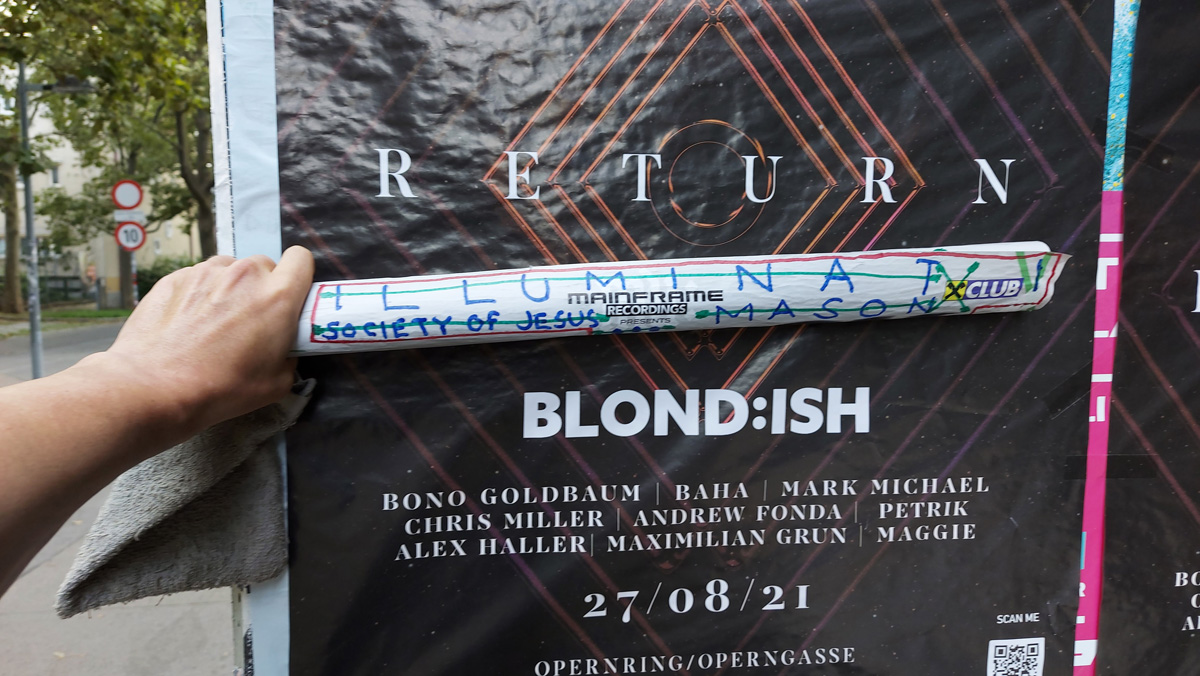 10
RETURN
ILLUMINATI
MAINFRAME
RECORDINGS
PRESENTS
X CLUB
SOCIETY OF JESUS
MASON
BLOND:ISH
BONO GOLDBAUM | BAHA | MARK MICHAEL
CHRIS MILLER | ANDREW FONDA | PETRIK
ALEX HALLER | MAXIMILIAN GRUN | MAGGIE
27/08/21
SCAN ME
OPERNRING/OPERNGASSE